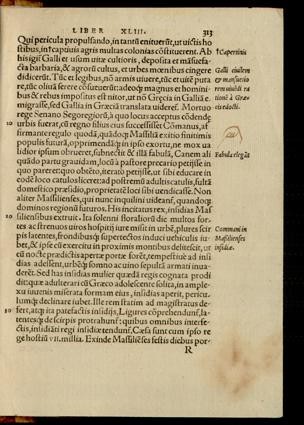 LIBER XLIII. 313
Qui pericula propulsando, in tantū enituerūt, ut uictis ho
stibus, in captiuis agris multas colonias cōstituerent. Ab
his igit̃ Galli et usum uitæ cultioris, deposita et māsuefa-
cta barbaria, & agrorū cultus, et urbes mœnibus cingere
didicerūt. Tūc et legibus, nō armis uiuere, tūc et uitē puta
re, tūc oliuā serere cōsueuerūt: adeoq́; magnus et homini-
bus & rebus impositus est nitor, ut nō Gręcia in Galliā e-
migrasse, sed Gallia in Græciā translata uideret̃. Mortuo
rege Senano Segoregiorū, à quo locus acceptus cōdendę
10 urbis fuerat, cū regno filius eius successisset Cōmanus, af
firmante regulo quodā, quādoq́; Massiliā exitio finitimis
populis futurā, opprimendāq́; in ipso exortu, ne mox ua
lidior ipsum obrueret, subnectit & illā fabulā, Canem ali
quādo partu grauidā, locū à pastore precario petijsse in
quo pareret: quo obtēto, iteratò petijsse, ut sibi educare in
eodē loco catulos liceret: ad postremū adultis catulis, fultā
domestico præsidio, proprietatē loci sibi uendicasse. Non
aliter Massilienses, qui nunc inquilini uideant̃, quandoq́;
dominos regionū futuros. His incitatus rex, insidias Mas
20 siliensibus extruit. Ita solenni floraliorū die multos for-
tes ac strenuos uiros hospitij iure misit in urbē, plures scir
pis latentes, frondibusq́; suppositos induci uehiculis iu-
bet, & ipse cū exercitu in proximis montibus delitescit, ut
cū nocte à prędictis apertæ portæ forēt, tempestiuè ad in
sidias adessent, urbēq́; somno ac uino sepultā armati inua-
derēt. Sed has insidias mulier quædā regis cognata prodi
dit: quæ adulterari cū Græco adolescente solita, in ample
xu iuuenis miserata formam eius, insidias aperit, pericu-
lumq́; declinare iubet. Ille rem statim ad magistratus de
30 fert, atq́; ita patefactis insidijs, Ligures cōprehendunt̃, la-
tentesq́; de scirpis protrahunt̃: quibus omnibus interfe-
ctis, insidiāti regi insidiæ tendunt̃. Cæsa sunt cum ipso re
ge hostiū VII. milia. Exinde Massiliēses festis diebus por-
R
Galli ciuilem
& mansuetio
rem uiuēdi ra
tionē à Græ-
cis edocti.
Fabula elegās
Commani in
Massilienses
insidiæ.